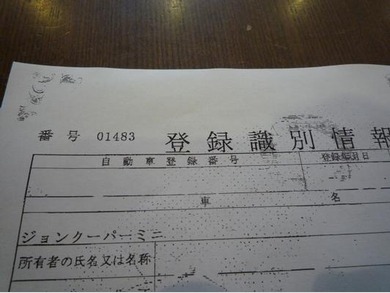 番号 01483 登録識別情報
自動車登録番号 登録年月日
車名
ジョンクーパーミニ
所有者の氏名又は名称